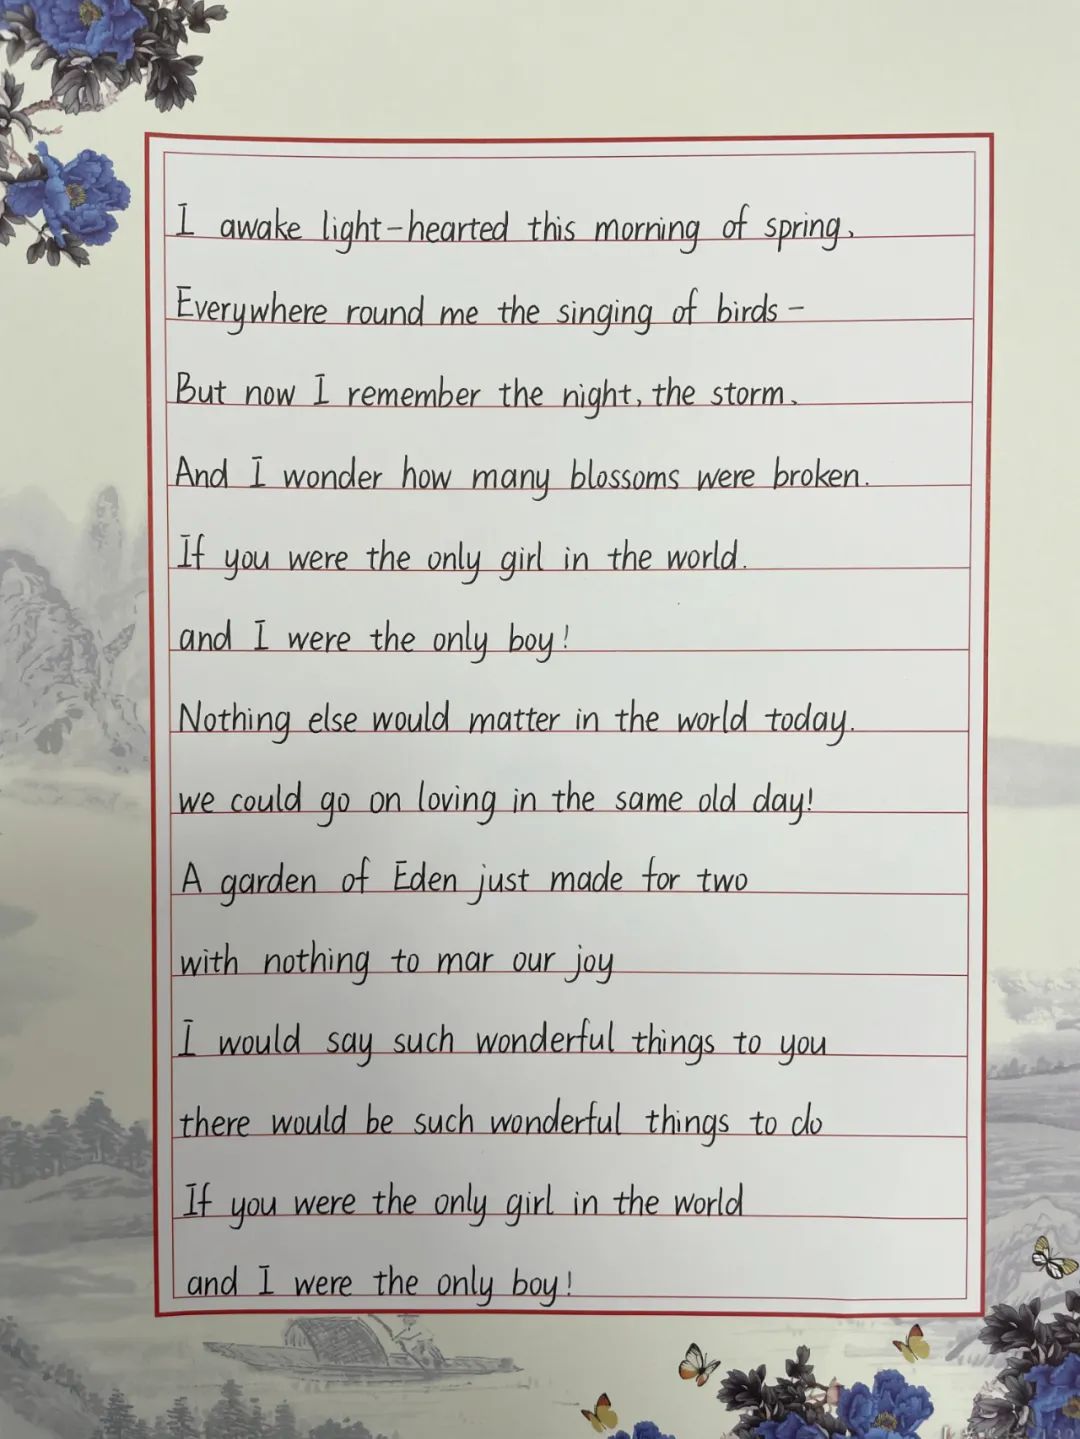 I awake light-hearted this morning of spring,
Everywhere round me the singing of birds -
But now I remember the night, the storm,
And I wonder how many blossoms were broken.
If you were the only girl in the world.
and I were the only boy!
Nothing else would matter in the world today.
we could go on loving in the same old day!
A garden of Eden just made for two
with nothing to mar our joy
I would say such wonderful things to you
there would be such wonderful things to do
If you were the only girl in the world
and I were the only boy!